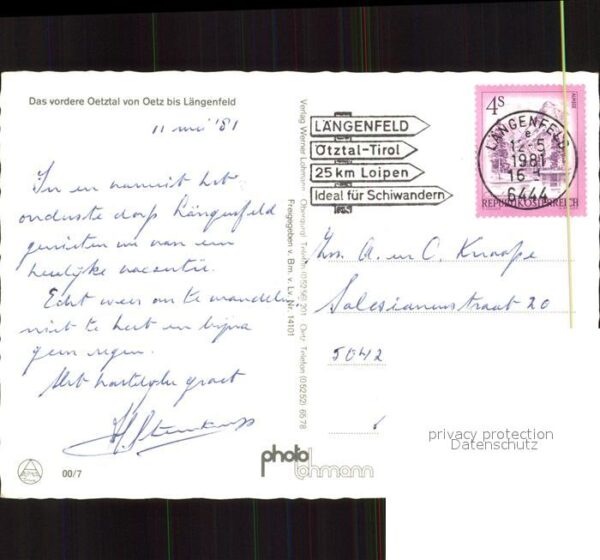 Das vordere Oetztal von Oetz bis Längenfeld
11 mei '81
In en vanuit het
onderste dorp Längenfeld
genieten wij van een
heerlijke vacantie.
Echt weer om te wandelen
niet te heet en bijna
geen regen.
Met hartelijke groet
00/7
Verlag Werner Lohmann Obergurgl Telefon (05256) 201 Oetz Telefon (05252) 6578
Freigegeben v. Bm. v. Lv. Nr. 14101
photo
lohmann
LÄNGENFELD
Ötztal-Tirol
25 km Loipen
Ideal für Schiwandern
4S
REPUBLIK ÖSTERREICH
LÄNGENFELD
e
12.-5.
1981
16
6444
A. en C. Knaape
Salesianumstraat 20
5042
privacy protection
Datenschutz